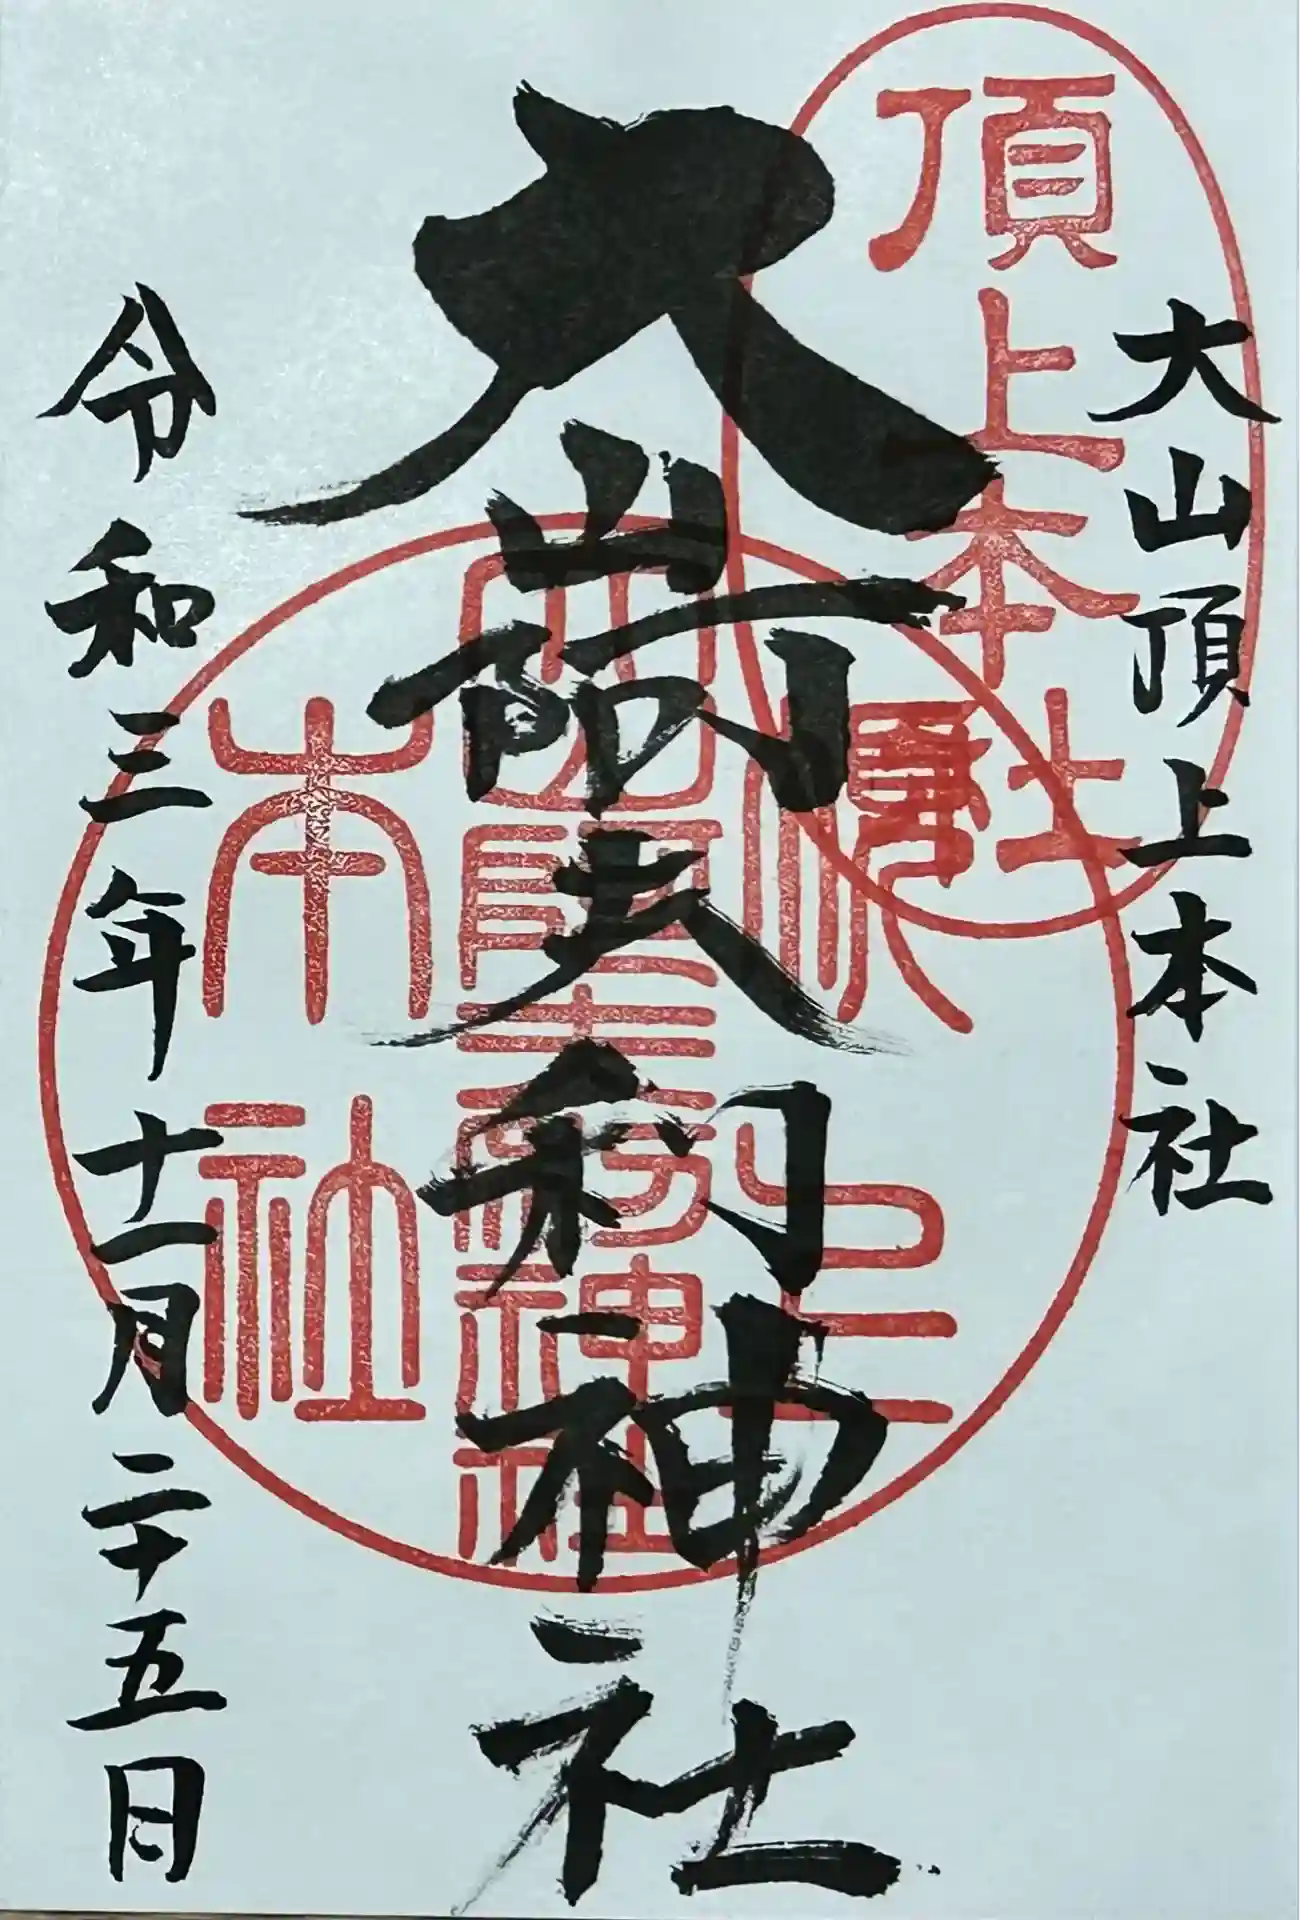 頂上本社
大山頂上本社
大山阿夫利神社
頂上
本社
令和三年十一月二十五日